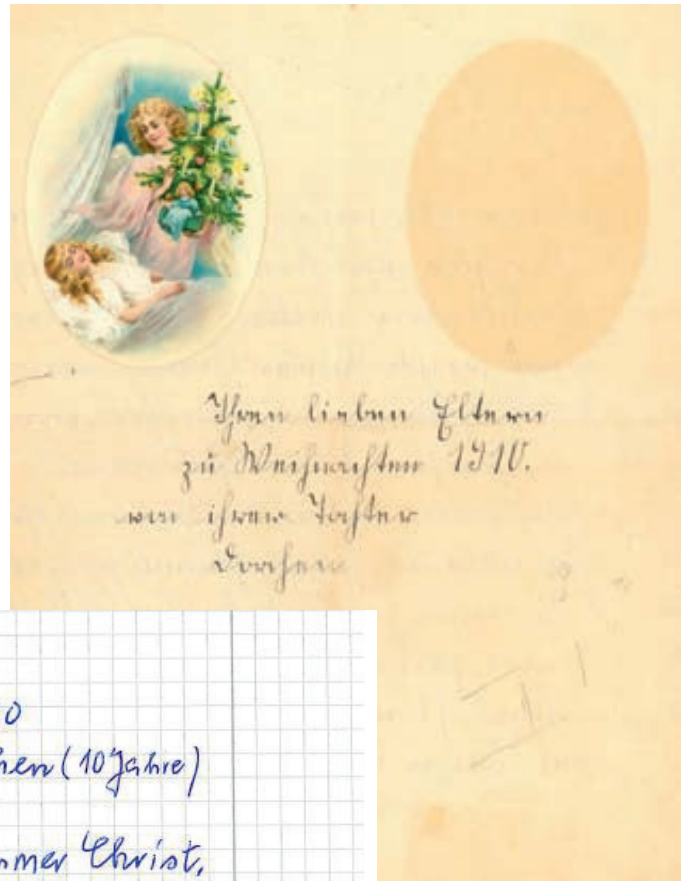 Ihren lieben Eltern
zu Weihnachten 1910.
von ihrer Tochter
Dorchen
0
hen (10 Jahre)
mmer Christ,